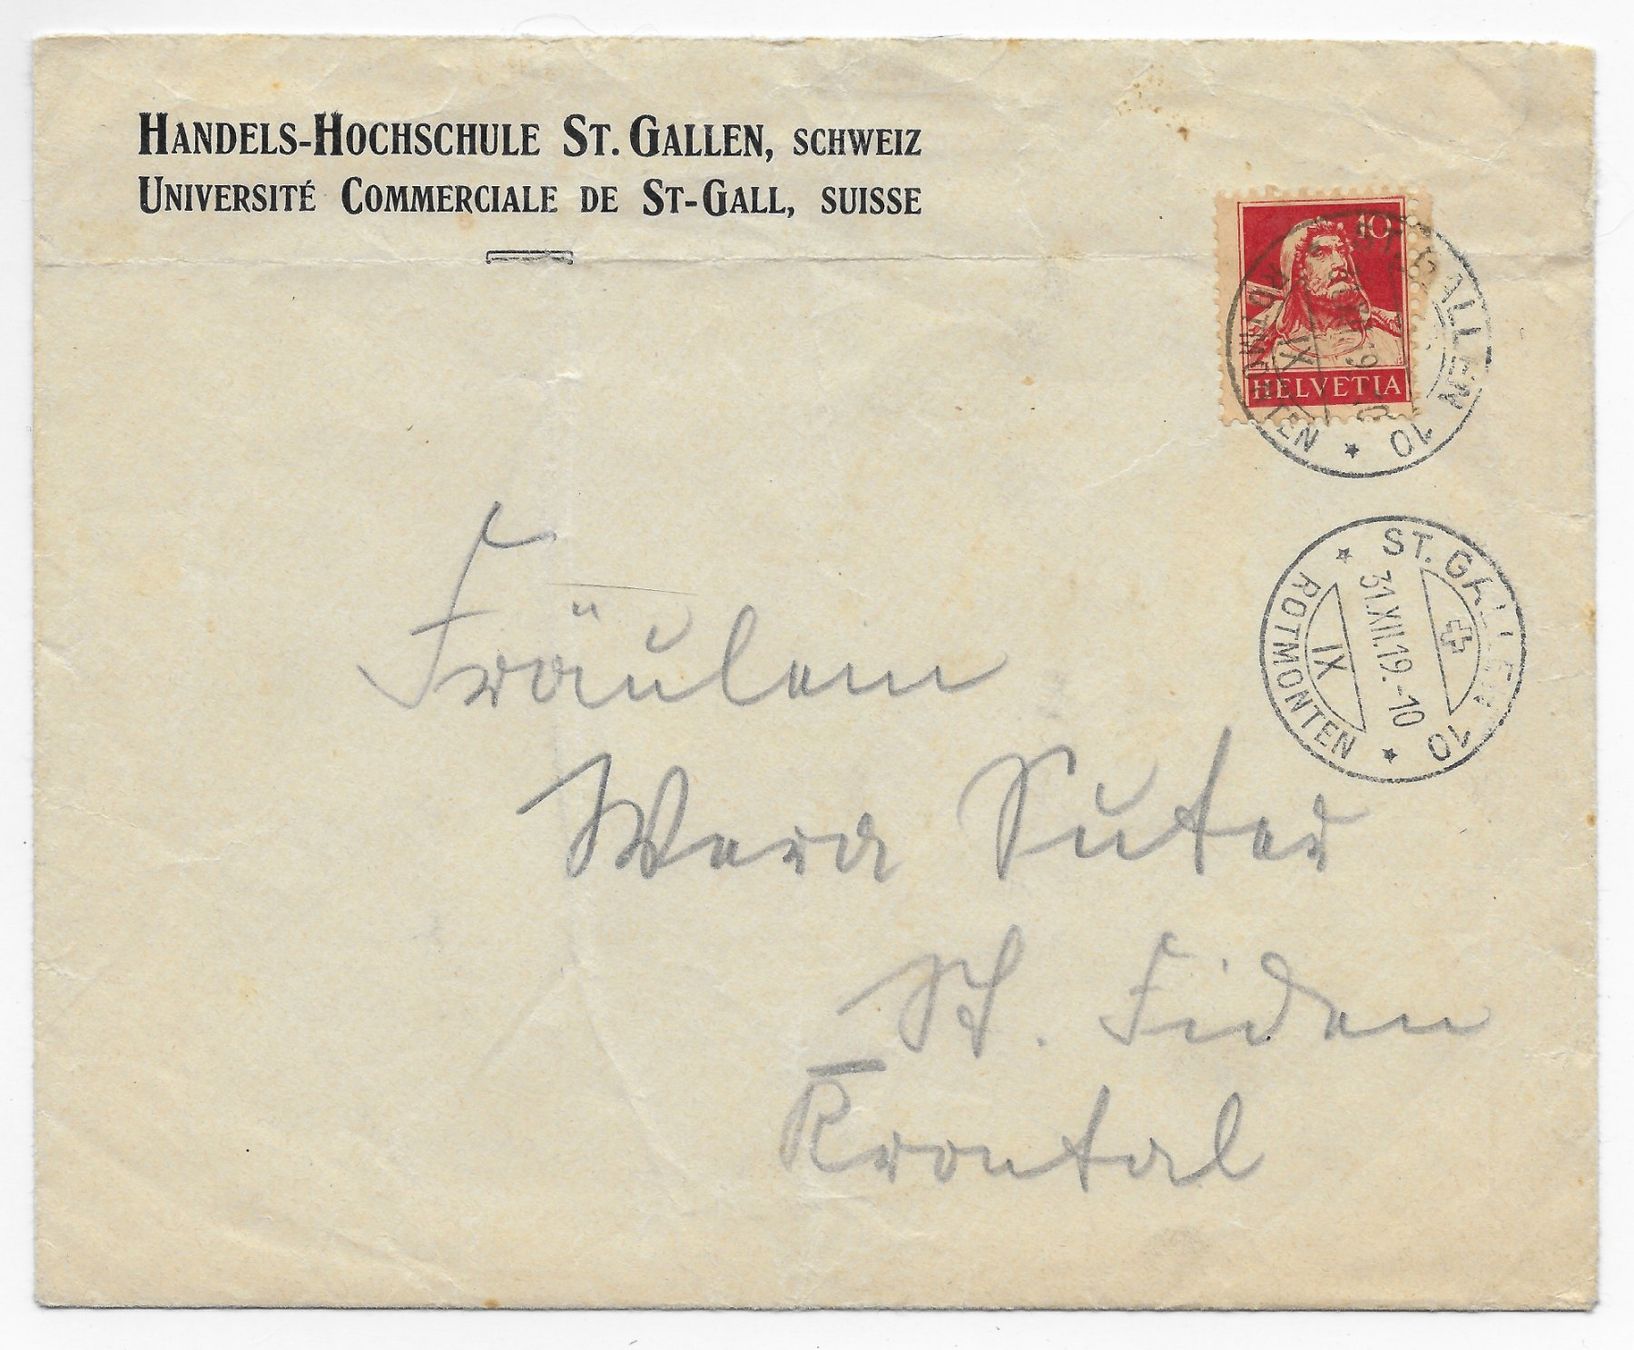 HANDELS-HOCHSCHULE ST. GALLEN, SCHWEIZ
UNIVERSITÉ COMMERCIALE DE ST-GALL, SUISSE
10
HELVETIA
ST. GALLEN 10
IX
ROTMONTEN
ST. GALLEN 10
31.XII.19.-10
IX
ROTMONTEN
Fräulein
Wera Suter
St. Fiden
Krontal